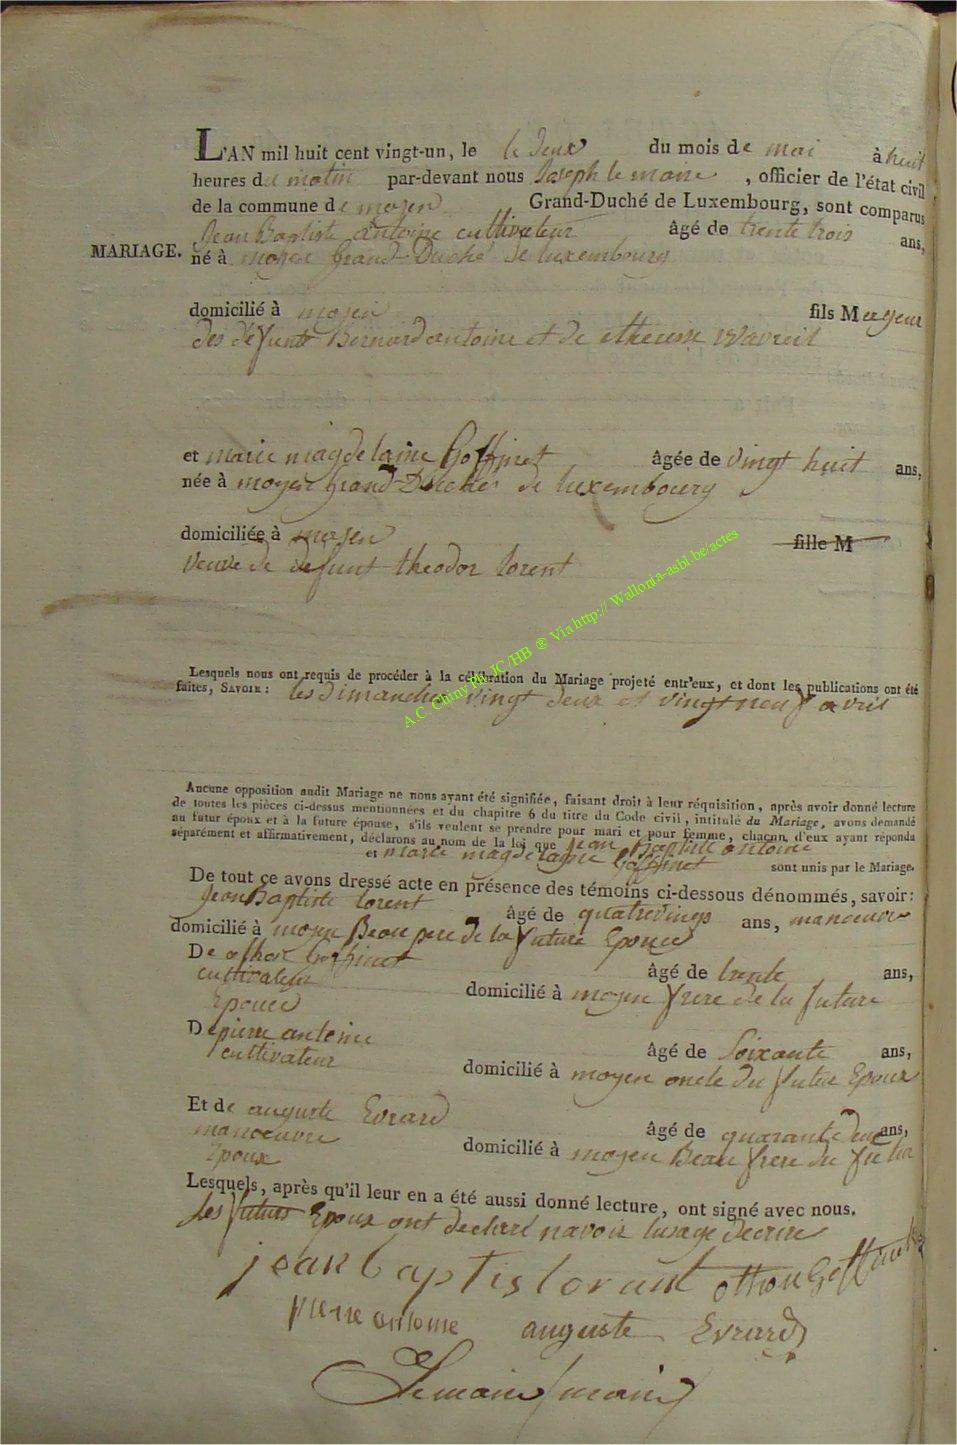 L'AN mil huit cent vingt-un, le le deux du mois de mai à huit
heures du matin par-devant nous Joseph le maire , officier de l'état civil
de la commune de moyen Grand-Duché de Luxembourg, sont comparus
Jean Baptiste antoine cultivateur âgé de trente trois ans,
MARIAGE. né à moyen grand Duché de luxembourg
domicilié à moyen fils Mageur
des défunts Bernard antoine et de etheresse wavreil
et marie magdelaine Goffinet âgée de vingt huit ans,
née à moyen grand Duché de luxembourg
domiciliée à moyen fille M
veuve de defunt théodor lorent
A.C. Chiny Ph. JC/HB ® Via http:// Wallonia-asbl.be/actes
Lesquels nous ont requis de procéder à la célébration du Mariage projeté entr'eux, et dont les publications ont été
faites, SAVOIR : les dimanches vingt deux et vingt neuf avril
Aucune opposition audit Mariage ne nous ayant été signifiée, faisant droit à leur réquisition, après avoir donné lecture
de toutes les pièces ci-dessus mentionnées et du chapitre 6 du titre du Code civil, intitulé du Mariage, avons demandé
au futur époux et à la future épouse, s'ils veulent se prendre pour mari et pour femme, chacun d'eux ayant répondu
séparément et affirmativement, déclarons au nom de la loi que jean Baptiste antoine
et marie magdelaine Goffinet sont unis par le Mariage.
De tout ce avons dressé acte en présence des témoins ci-dessous dénommés, savoir:
Jean Baptiste lorent âgé de quatrevings ans, manoeuvre
domicilié à moyen Beau pere de la future Epouce
De othon Goffinet âgé de trente ans,
cultivateur domicilié à moyen frere de la future
Epouce
De pierre antoine âgé de Soixante ans,
cultivateur domicilié à moyen oncle du futur Epoux
Et de auguste Evrard âgé de quarante deux ans,
manoeuvre domicilié à moyen Beau frere du futur
Epoux
Lesquels, après qu'il leur en a été aussi donné lecture, ont signé avec nous.
les futurs Epoux ont declaré navoir lusage decrire
jean baptis lorant othon Goffinet
pierre antoine auguste Evrard
Lemaire maire